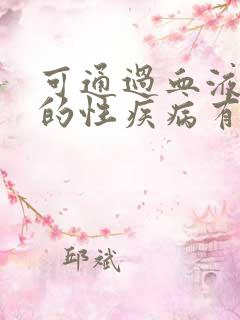 可通过血液
的性疾病有
邱斌